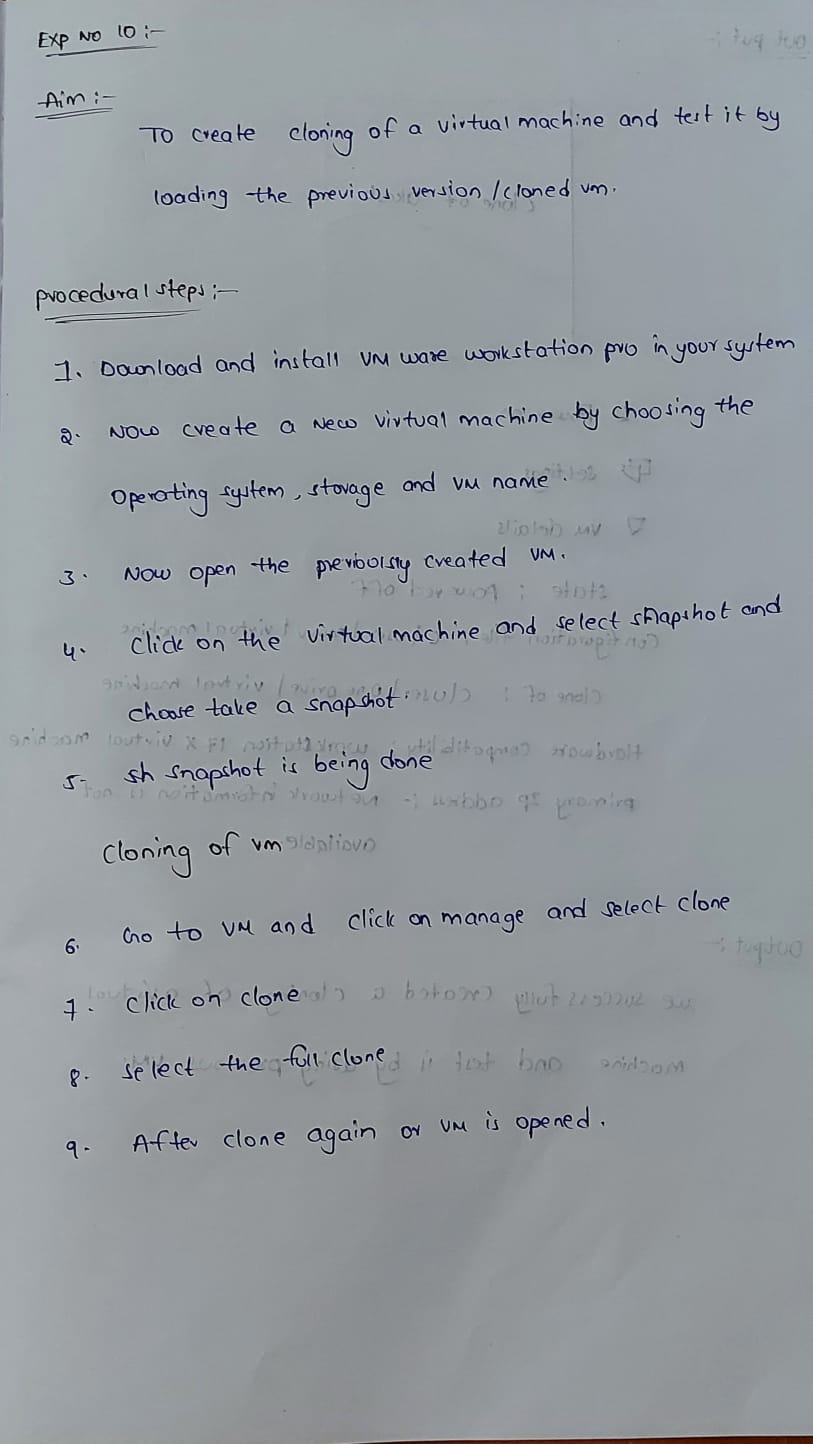 Exp No 10 :-
Aim :-
To create cloning of a virtual machine and test it by
loading the previous version / cloned vm.
procedural steps :-
1. Download and install VM ware workstation pro in your system
2. Now create a New virtual machine by choosing the
Operating system, storage and VM name.
3. Now open the previoolsty created VM.
4. Click on the virtual machine and select snapshot and
choose take a snapshot.
5- sh snapshot is being done
Cloning of vm
6. Go to VM and click on manage and select clone
7. Click on clone
8. select the full clone
9. After clone again or VM is opened.